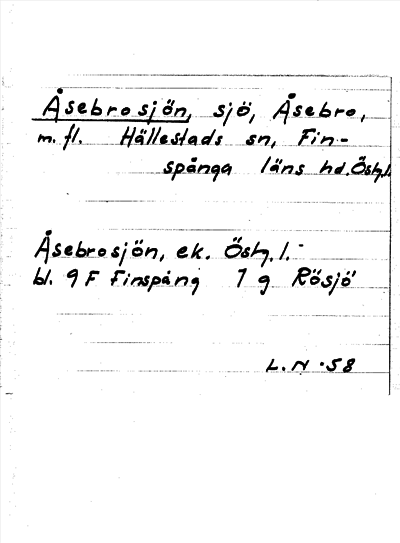 Åsebrosjön, sjö, Åsebro,
m.fl. Hällestads sn, Fin-
spånga läns hd. Östg.l.
Åsebrosjön, ek. Östg.l.
bl. 9 F Finspång 7 g Rösjö
L.N -58